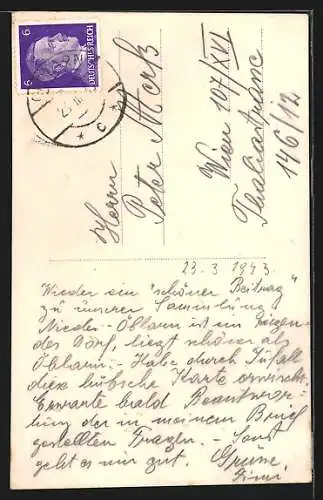 6 6
DEUTSCHES REICH
c
Herrn
Peter Merk
Wien 107/XVI
Thaliastrasse
146/12
23.3.1943.
Wieder ein "schöner Beitrag"
zu unserer Sammlung
Nieder-Öblarn ist ein
des Dorf, liegt schöner als
Öblarn. - Habe durch Zufall
diese hübsche Karte erwischt.
Erwarte bald Beantwor-
tung der in meinem Brief
gestellten Fragen. - Sonst
geht es mir gut. Grüsse,